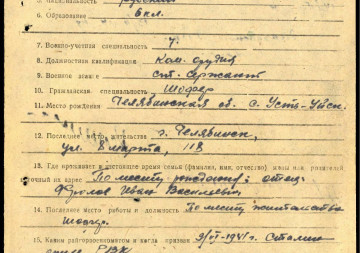 5. Национальность русский
6. Образование 6 кл.
7. Военно-учетная специальность 4.
8. Должностная квалификация Ком. орудия
9. Военное звание ст. сержант
10. Гражданская специальность Шофер
11. Место рождения Челябинская об. с. Усть-Уйск.
12. Последнее место жительства г. Челябинск,
ул. 8 марта, 113
13. Где проживает в настоящее время семья (фамилия, имя, отчество) жены или родителей
адрес По месту рождения: отец
Фролов Иван Васильевич
14. Последнее место работы и должность По месту жительства
шофер.
15. Каким райгорвоенкоматом и когда призван 9/VI-1941 г. Сталин
РВК